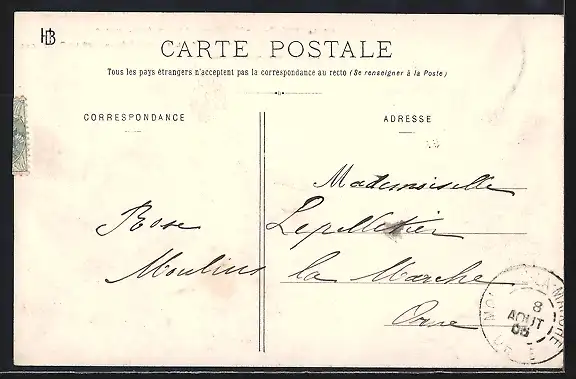 HB
CARTE POSTALE
Tous les pays étrangers n'acceptent pas la correspondance au recto (Se renseigner à la Poste)
CORRESPONDANCE
ADRESSE
Mademoiselle
Rose Lepelletier
Moulins la Marche
Orne
MOULINS-LA-MARCHE
8
AOUT
ORNE